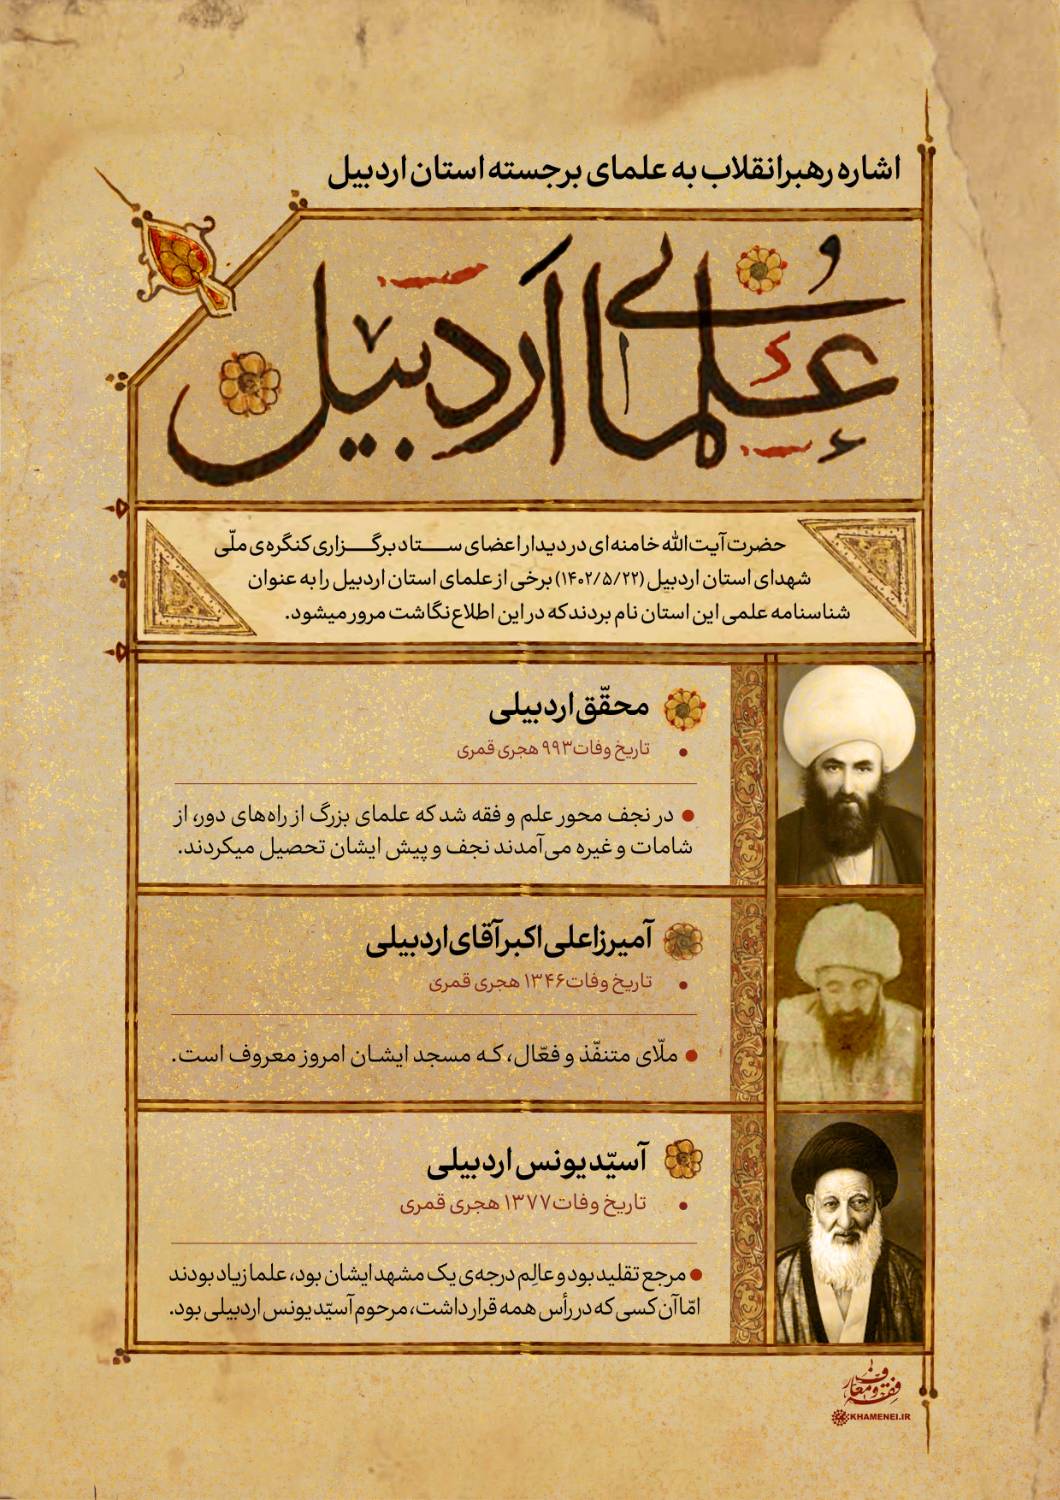 اشاره رهبر انقلاب به علمای برجسته استان اردبیل
عُلمای اردبیل
حضرت آیت‌الله خامنه‌ای در دیدار اعضای ستاد برگزاری کنگره‌ی ملّی
شهدای استان اردبیل (۱۴۰۲/۵/۲۲) برخی از علمای استان اردبیل را به عنوان
شناسنامه علمی این استان نام بردند که در این اطلاع‌نگاشت مرور میشود.
محقّق اردبیلی
• تاریخ وفات ۹۹۳ هجری قمری
• در نجف محور علم و فقه شد که علمای بزرگ از راه‌های دور، از
شامات و غیره می‌آمدند نجف و پیش ایشان تحصیل میکردند.
آمیرزاعلی‌اکبرآقای اردبیلی
• تاریخ وفات ۱۳۴۶ هجری قمری
• ملّای متنفّذ و فعّال، که مسجد ایشان امروز معروف است.
آسیّدیونس اردبیلی
• تاریخ وفات ۱۳۷۷ هجری قمری
• مرجع تقلید بود و عالِم درجه‌ی یک مشهد ایشان بود، علما زیاد بودند
امّا آن کسی که در رأس همه قرار داشت، مرحوم آسیّدیونس اردبیلی بود.
فقه و معارف
KHAMENEI.IR